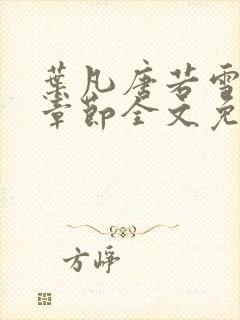 葉凡唐若雪
章節全文免
方崢